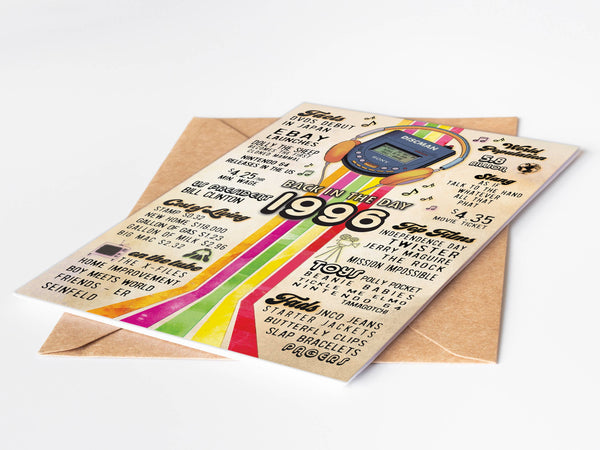 Facts
DVDS DEBUT
IN JAPAN
EBAY
LAUNCHES
DOLLY THE SHEEP
BECOMES THE FIRST
CLONED MAMMAL
NINTENDO 64
RELEASES IN THE US
$4.25
MIN WAGE
US PRESIDENT
BILL CLINTON
Cost of Living
STAMP $0.32
NEW HOME $118,000
GALLON OF GAS $1.23
GALLON OF MILK $2.96
BIG MAC $2.32
on the tube
THE X-FILES
HOME IMPROVEMENT
BOY MEETS WORLD
FRIENDS ER
SEINFELD
DISCMAN
SONY
BACK IN THE DAY
1996
World
Population
5.8
BILLION
Slang
AS IF
TALK TO THE HAND
WHATEVER
ALL THAT
PHAT
$4.35
MOVIE TICKET
Top Films
INDEPENDENCE DAY
TWISTER
JERRY MAGUIRE
THE ROCK
MISSION IMPOSSIBLE
TOYS POLLY POCKET
BEANIE BABIES
TICKLE ME ELMO
NINTENDO 64
TAMAGOTCHI
Fads JNCO JEANS
STARTER JACKETS
BUTTERFLY CLIPS
SLAP BRACELETS
PAGERS